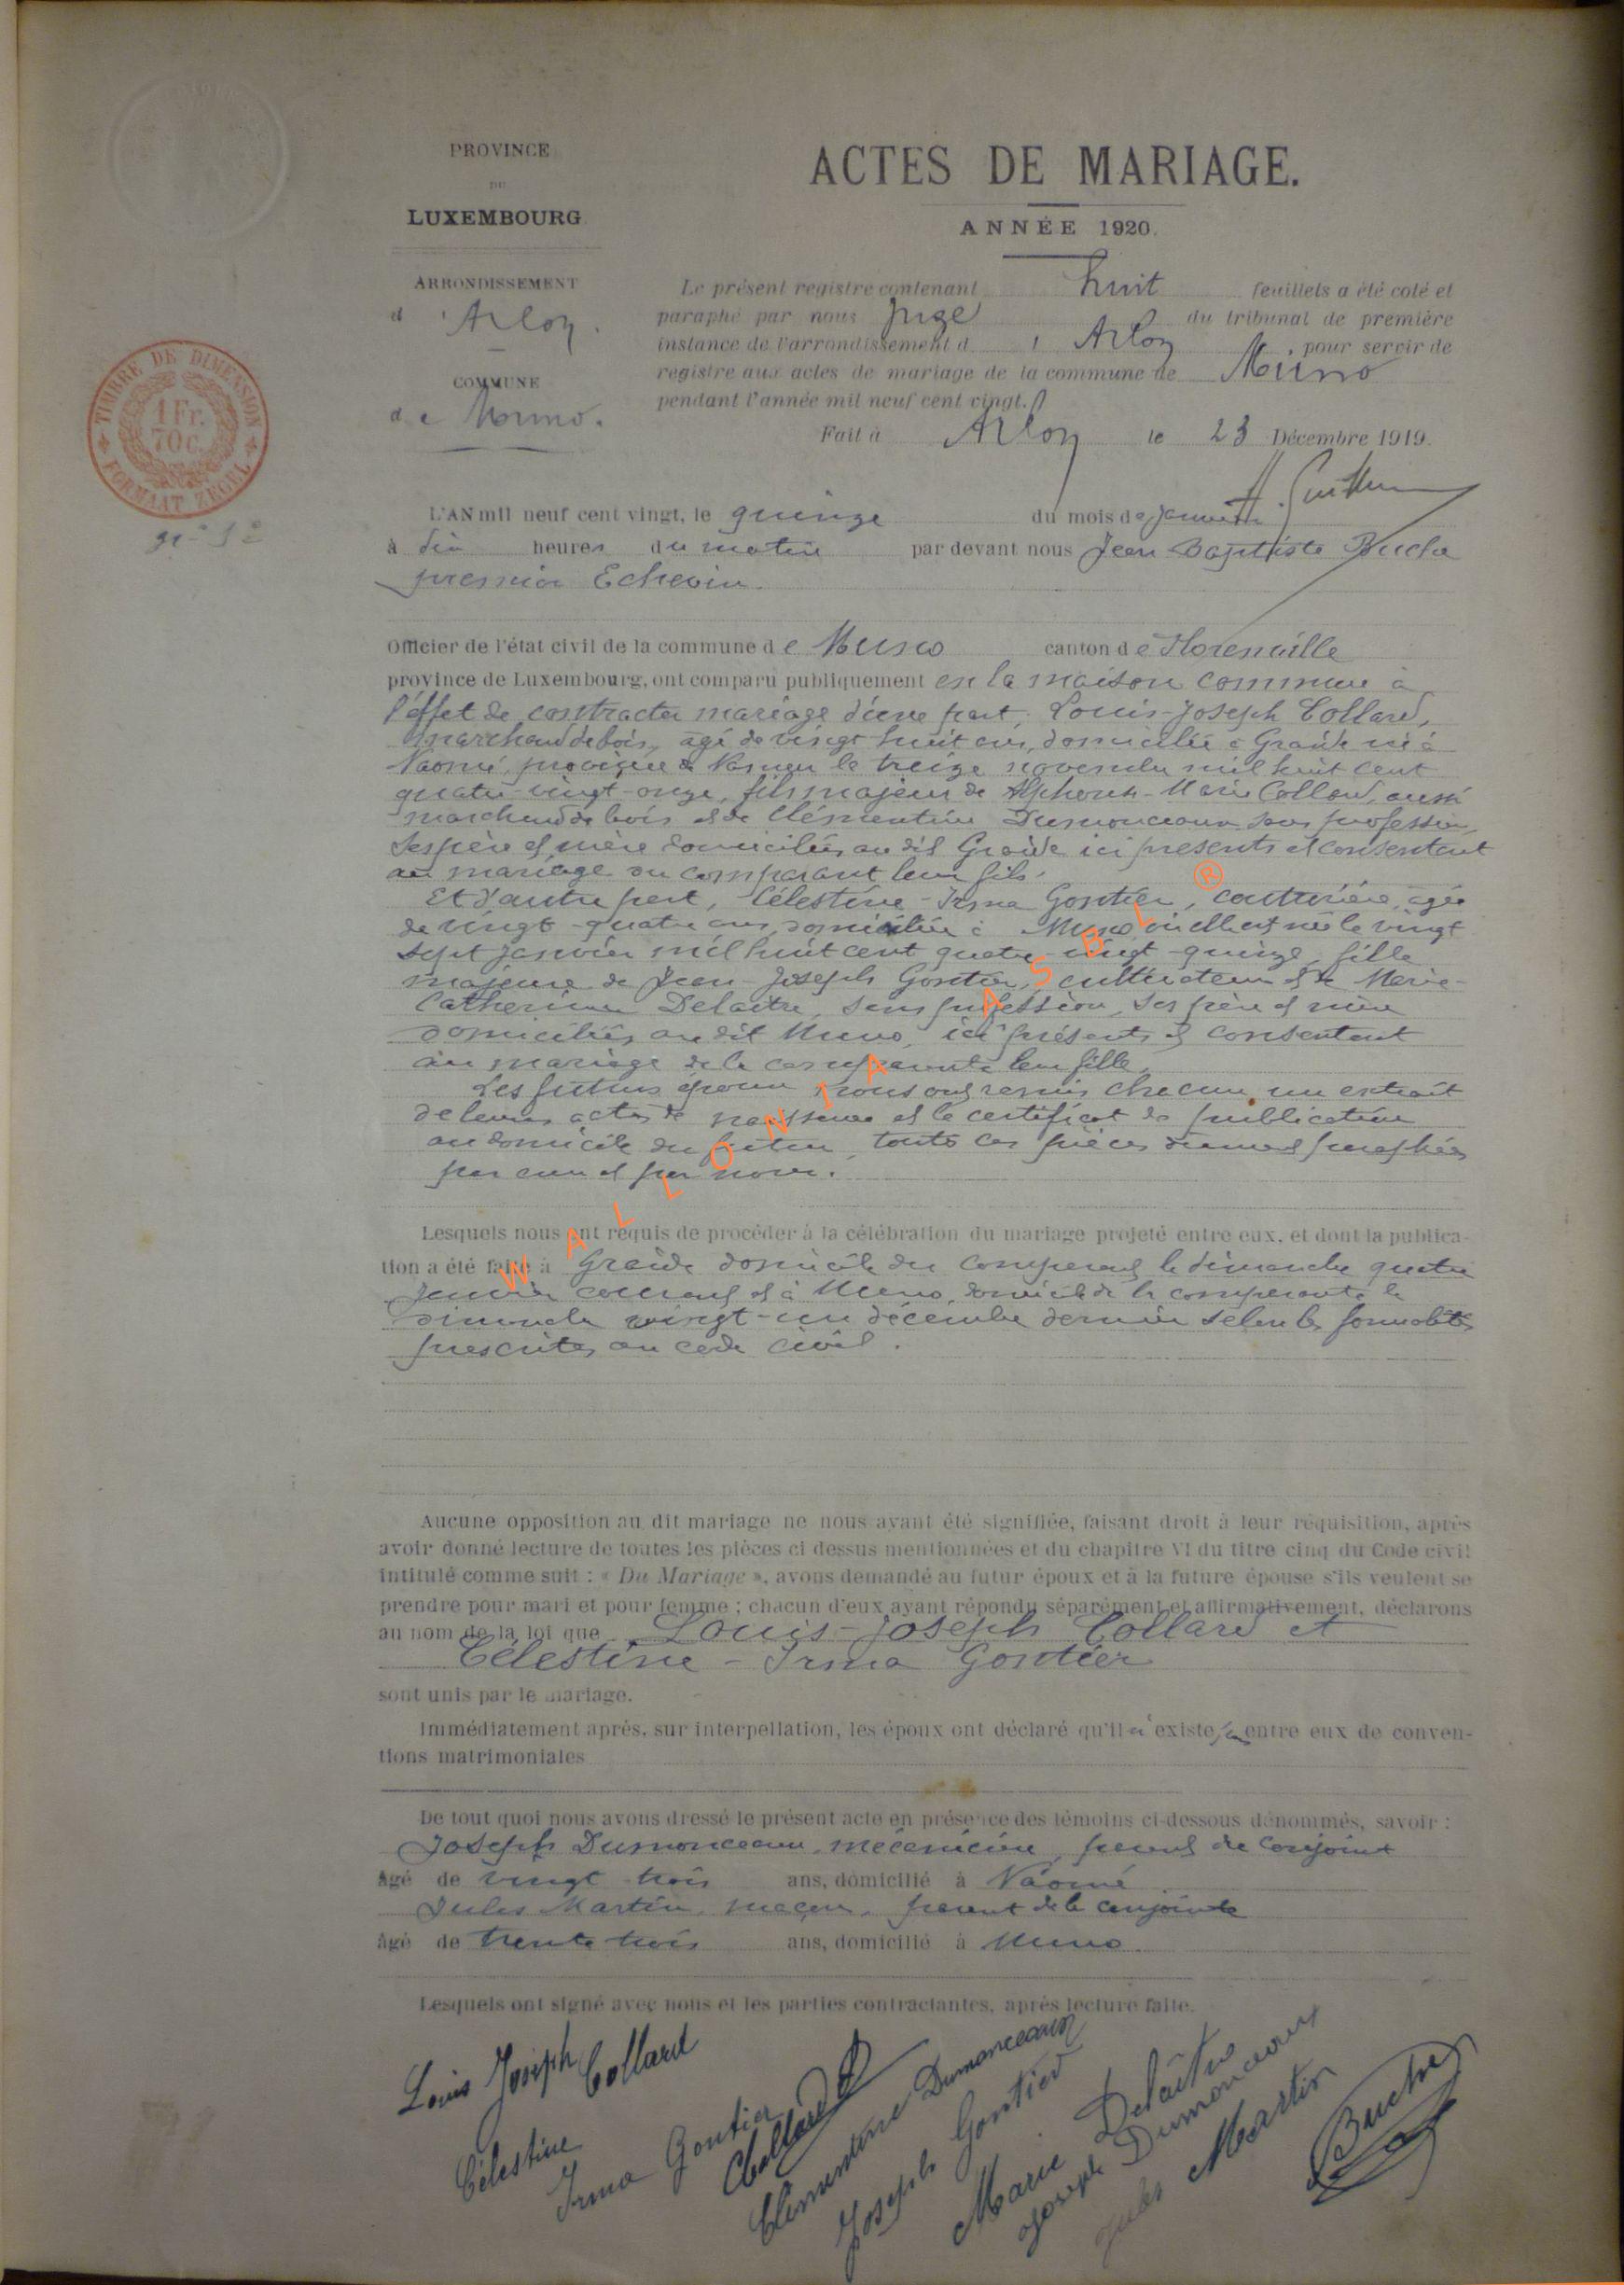 PROVINCE
DU
LUXEMBOURG
ARRONDISSEMENT
d'Arlon.
COMMUNE
de Muno.
TIMBRE DE DIMENSION
1 Fr.
70 C.
FORMAAT ZEGEL
ACTES DE MARIAGE.
ANNÉE 1920.
Le présent registre contenant huit feuillets a été coté et
paraphé par nous Juge du tribunal de première
instance de l'arrondissement d'Arlon pour servir de
registre aux actes de mariage de la commune de Muno
pendant l'année mil neuf cent vingt.
Fait à Arlon le 23 Décembre 1919.
L'AN mil neuf cent vingt, le quinze du mois de janvier
à dix heures du matin par devant nous Jean Baptiste Buche
premier Echevin
Officier de l'état civil de la commune de Muno canton de Florenville
province de Luxembourg, ont comparu publiquement en la maison commune à
l'effet de contracter mariage d'une part, Louis-Joseph Collard,
marchand de bois, âgé de vingt huit ans, domicilié à Graide né à
Naomé, province de Namur le treize novembre mil huit cent
quatre-vingt-onze, fils majeur de Alphonse-Marie Collard, aussi
marchand de bois et de Clémentine Dumonceaux sans profession,
ses père et mère domiciliés au dit Graide ici présents et consentant
au mariage du comparant leur fils.
Et d'autre part, Célestine-Irma Gontier, couturière, âgée
de vingt-quatre ans, domiciliée à Muno où elle est née le vingt
sept janvier mil huit cent quatre-vingt-quinze, fille
majeure de Jean-Joseph Gontier, cultivateur et de Marie-
Catherine Delaitre, sans profession, ses père et mère
domiciliés au dit Muno, ici présents et consentant
au mariage de la comparante leur fille.
Les futurs époux nous ont remis chacun un extrait
de leurs actes de naissance et le certificat de publication
au domicile du futur, toutes ces pièces dûment paraphées
par eux et par nous.
Lesquels nous ont requis de procéder à la célébration du mariage projeté entre eux, et dont la publica-
tion a été faite à Graide domicile du comparant le dimanche quatre
janvier courant et à Muno, domicile de la comparante le
dimanche vingt-un décembre dernier selon les formalités
prescrites au code civil.
Aucune opposition au dit mariage ne nous ayant été signifiée, faisant droit à leur réquisition, après
avoir donné lecture de toutes les pièces ci dessus mentionnées et du chapitre VI du titre cinq du Code civil
intitulé comme suit : « Du Mariage », avons demandé au futur époux et à la future épouse s'ils veulent se
prendre pour mari et pour femme ; chacun d'eux ayant répondu séparément et affirmativement, déclarons
au nom de la loi que Louis-Joseph Collard et
Célestine-Irma Gontier
sont unis par le mariage.
Immédiatement après, sur interpellation, les époux ont déclaré qu'il n'existe pas entre eux de conven-
tions matrimoniales
De tout quoi nous avons dressé le présent acte en présence des témoins ci-dessous dénommés, savoir :
Joseph Dumonceaux, mécanicien, parent du conjoint
âgé de vingt trois ans, domicilié à Naomé
Jules Martin, maçon, parent de la conjointe
âgé de trente trois ans, domicilié à Muno
Lesquels ont signé avec nous et les parties contractantes, après lecture faite.
Louis Joseph Collard
Célestine Irma Gontier
Collard
Clémentine Dumonceaux
Joseph Gontier
Marie Delaitre
Joseph Dumonceaux
Jules Martin
Buche
WALLONIA ASBL ®